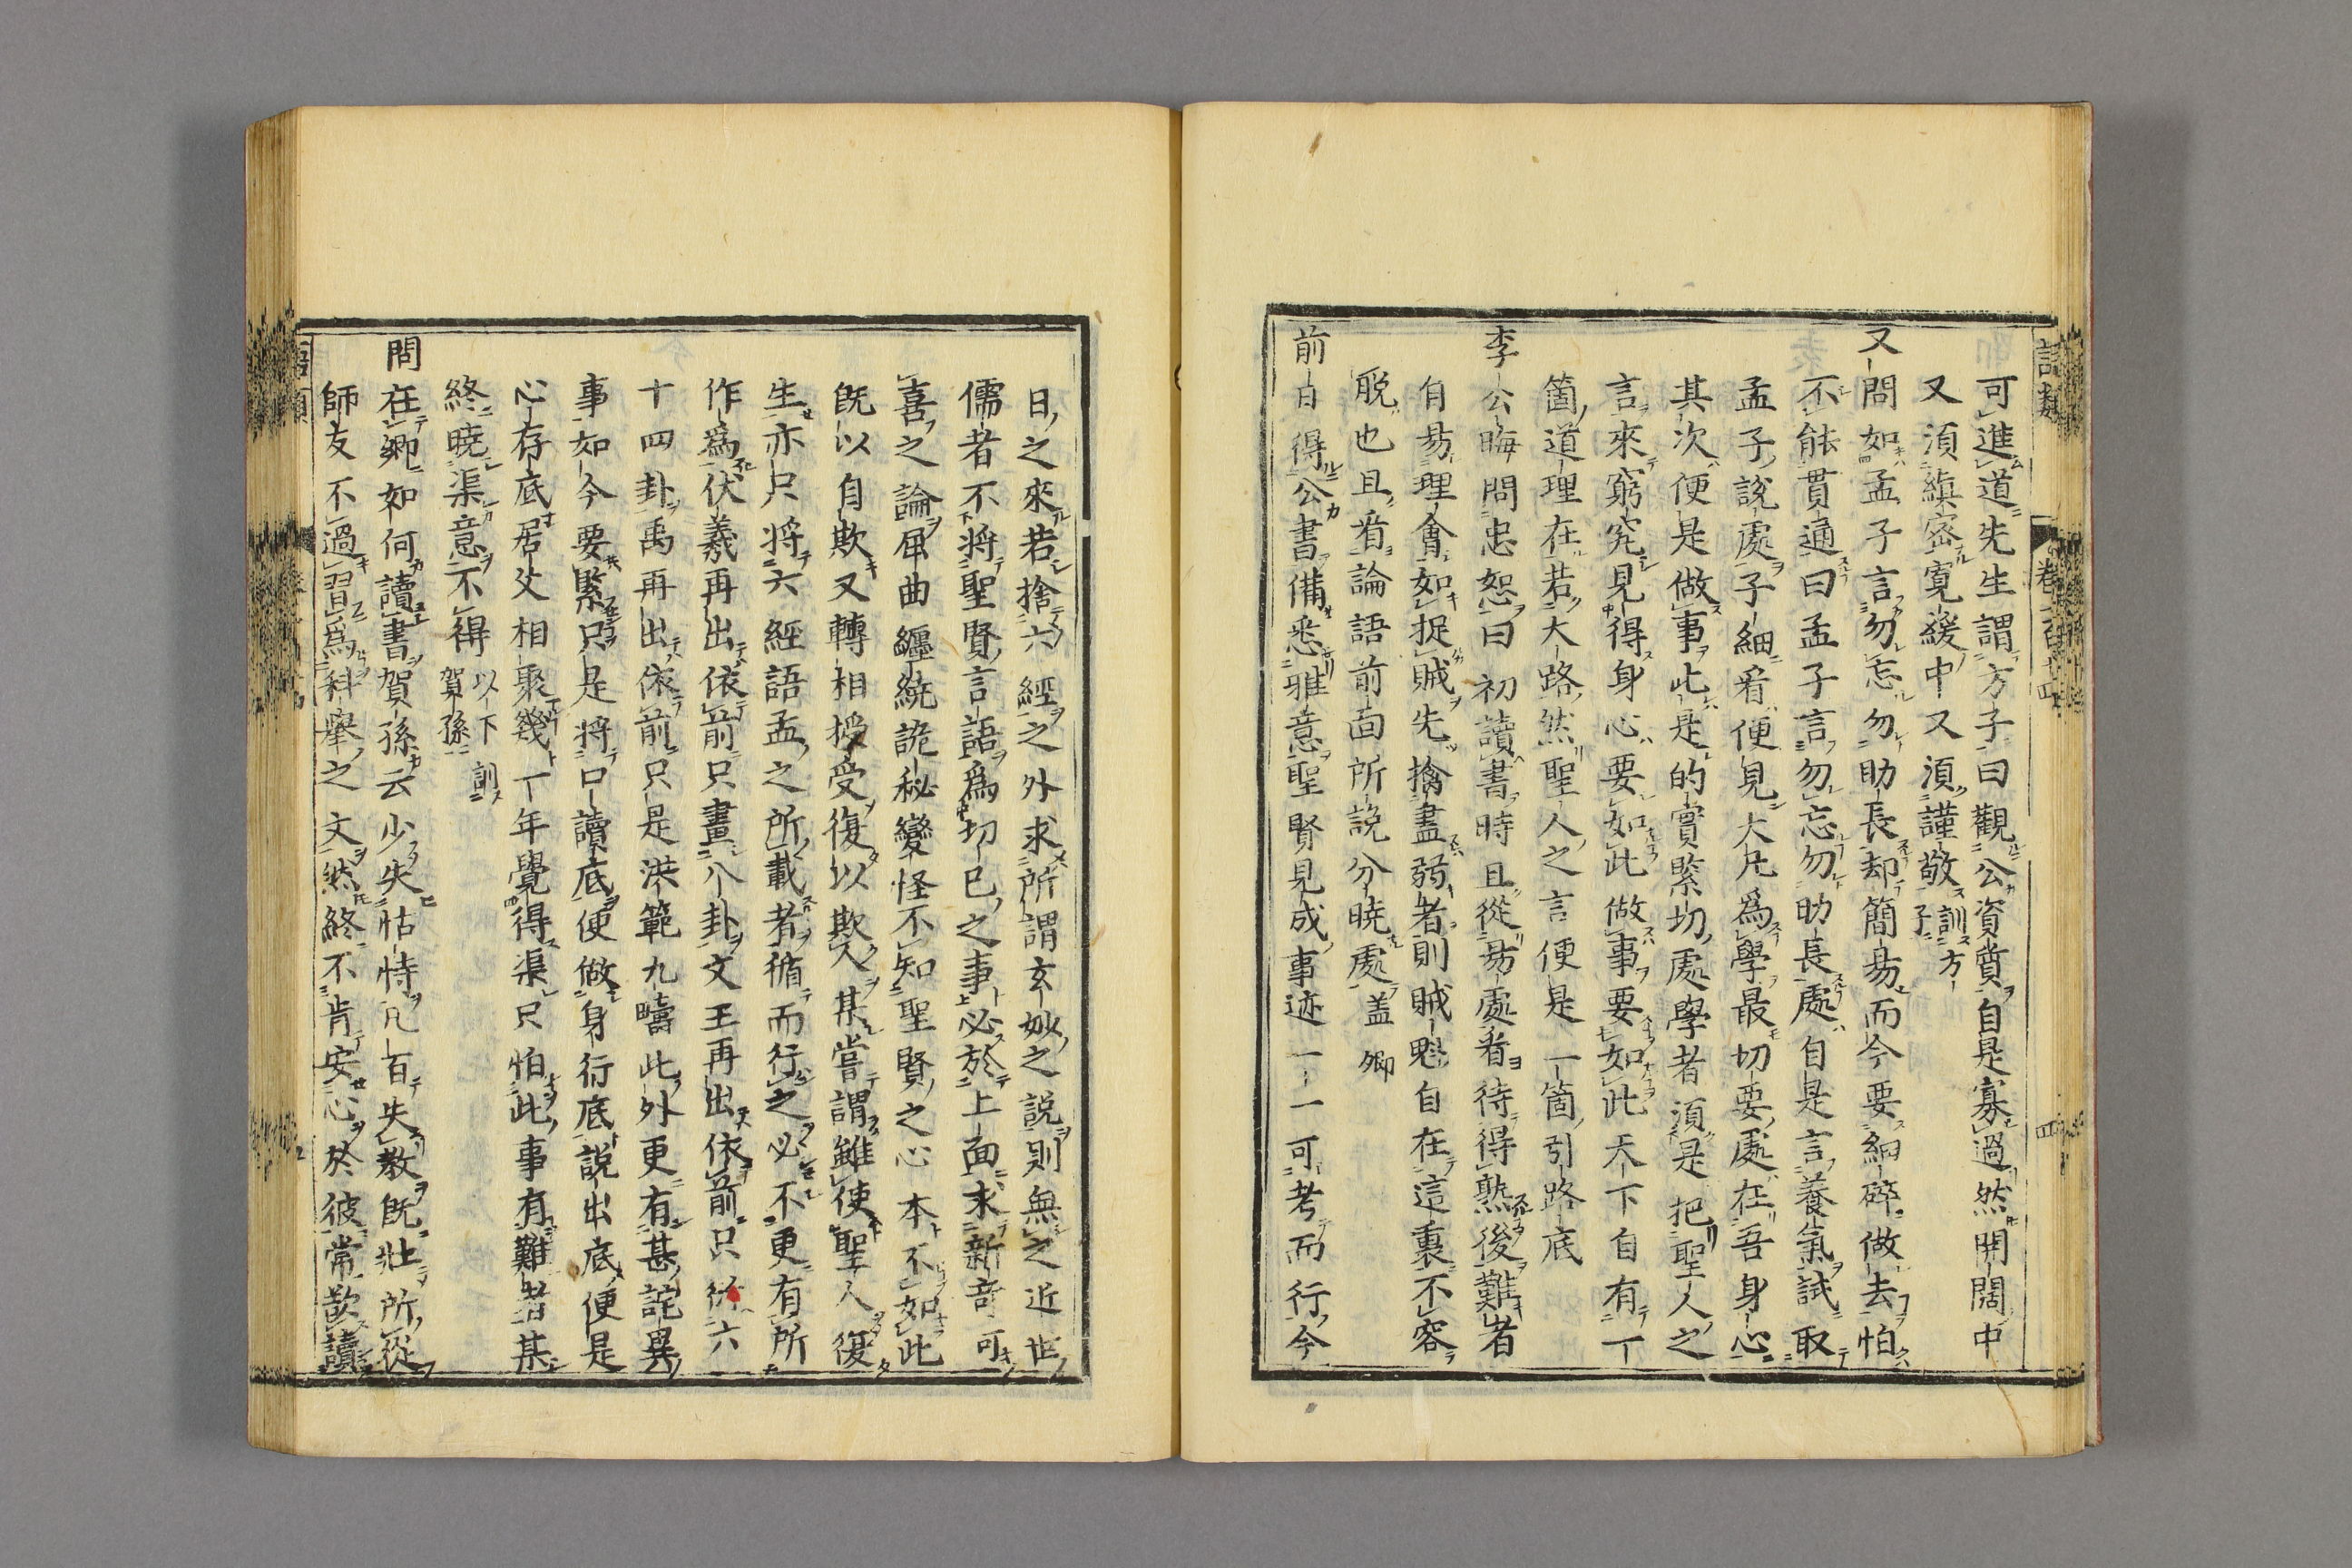 可進道先生謂方子曰觀公資質自是寡過然開闊中
又須縝密寬緩中又須謹敬訓方子
又問如孟子言勿忘勿助長却簡易而今要細碎做去怕
不能貫通曰孟子言勿忘勿助長處自是言養氣試取
孟子說處子細看便見大凡為學最切要處在吾身心
其次便是做事此是的實緊切處學者須是把聖人之
言來窮究見得身心要如此做事要如此天下自有一
箇道理在若大路然聖人之言便是一箇引路底
李公晦問忠恕曰初讀書時且從易處看待得熟後難者
自易理會如捉賊先擒盡弱者則賊魁自在這裏不容
脫也且看論語前面所說分曉處蓋卿
前日得公書備悉雅意聖賢見成事迹一一可考而行今
日之來若捨六經之外求所謂玄妙之說則無之近世
儒者不將聖賢言語為切己之事必於上面求新奇可
喜之論屈曲纏繞詭秘變怪不知聖賢之心本不如此
既以自欺又轉相授受復以欺人某嘗謂雖使聖人復
生亦只將六經語孟之所載者循而行之必不更有所
作為伏羲再出依前只畫八卦文王再出依前只衍六
十四卦禹再出依前只是洪範九疇此外更有甚詫異
事如今要緊只是將口讀底便做身行底說出底便是
心存底居父相聚幾丁年覺得渠只怕此事有難者某
終曉渠意不得以下訓賀孫
問在卿如何讀書賀孫云少失怙恃凡百失教既壯所從
師友不過習為科舉之文然終不肯安心於彼常欲讀
語類 卷一百十四 四